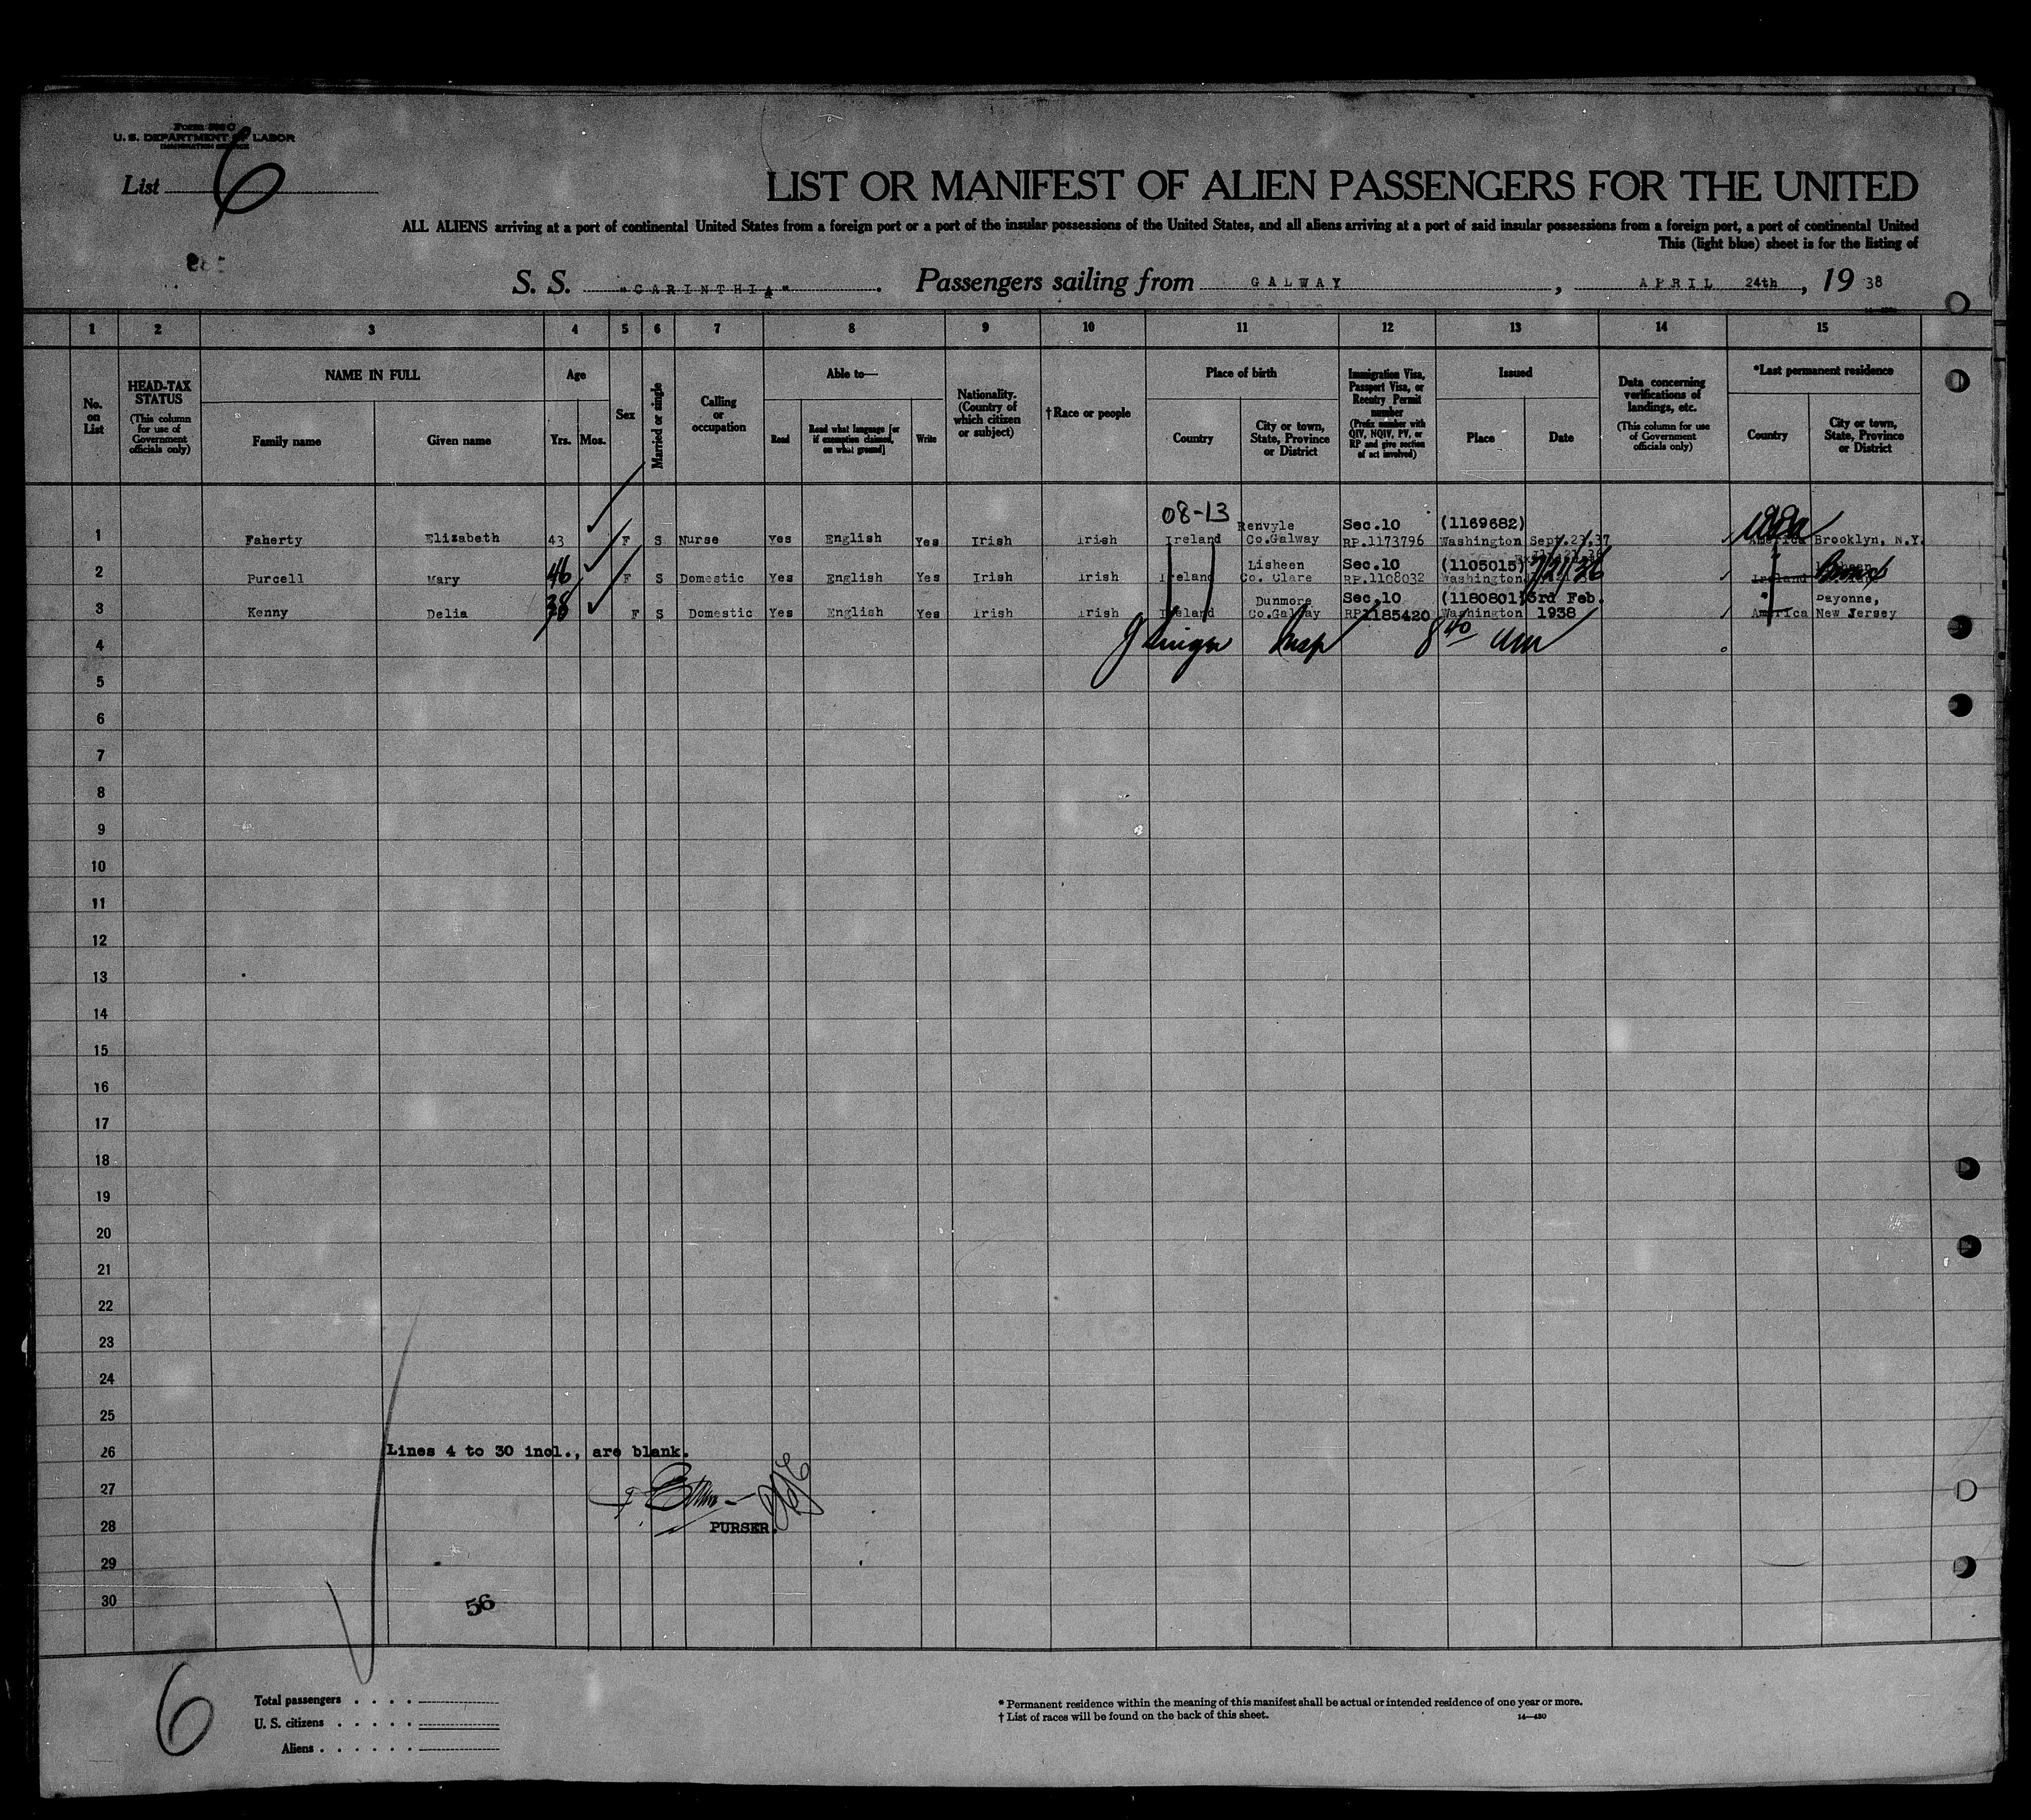 Form 500 C
U. S. DEPARTMENT OF LABOR
IMMIGRATION SERVICE
List 6
LIST OR MANIFEST OF ALIEN PASSENGERS FOR THE UNITED
ALL ALIENS arriving at a port of continental United States from a foreign port or a port of the insular possessions of the United States, and all aliens arriving at a port of said insular possessions from a foreign port, a port of continental United
This (light blue) sheet is for the listing of
S. S. "CARINTHIA". Passengers sailing from GALWAY, APRIL 24th, 19 38
1 2 3 4 5 6 7 8 9 10 11 12 13 14 15
No. on List
HEAD-TAX STATUS (This column for use of Government officials only)
NAME IN FULL
Family name Given name
Age
Yrs. Mos.
Sex
Married or single
Calling or occupation
Able to—
Read
Read what language [or if exemption claimed, on what ground]
Write
Nationality. (Country of which citizen or subject)
†Race or people
Place of birth
Country
City or town, State, Province or District
Immigration Visa, Passport Visa, or Reentry Permit number (Prefix number with QIV, NQIV, PV, or RP and give section of act involved)
Issued
Place Date
Data concerning verifications of landings, etc. (This column for use of Government officials only)
*Last permanent residence
Country
City or town, State, Province or District
08-13
Renvyle Sec.10 (1169682)
1 Faherty Elizabeth 43 F S Nurse Yes English Yes Irish Irish Ireland Co.Galway RP.1173796 Washington Sept.27,37 America Brooklyn, N.Y.
Lisheen Sec.10 (1105015)
2 Purcell Mary 46 F S Domestic Yes English Yes Irish Irish Ireland Co. Clare RP.1108032 Washington 7/21/36 Ireland Bronx
Dunmore Sec.10 (1180801) 3rd Feb. Bayonne,
3 Kenny Delia 38 F S Domestic Yes English Yes Irish Irish Ireland Co.Galway RP1185420 Washington 1938 America New Jersey
4 Insp 8 40 am
5
6
7
8
9
10
11
12
13
14
15
16
17
18
19
20
21
22
23
24
25
26 Lines 4 to 30 incl., are blank.
27
28 PURSER.
29
30 56
6
Total passengers . . . .
U. S. citizens . . . . .
Aliens . . . . . .
* Permanent residence within the meaning of this manifest shall be actual or intended residence of one year or more.
† List of races will be found on the back of this sheet.
14—430